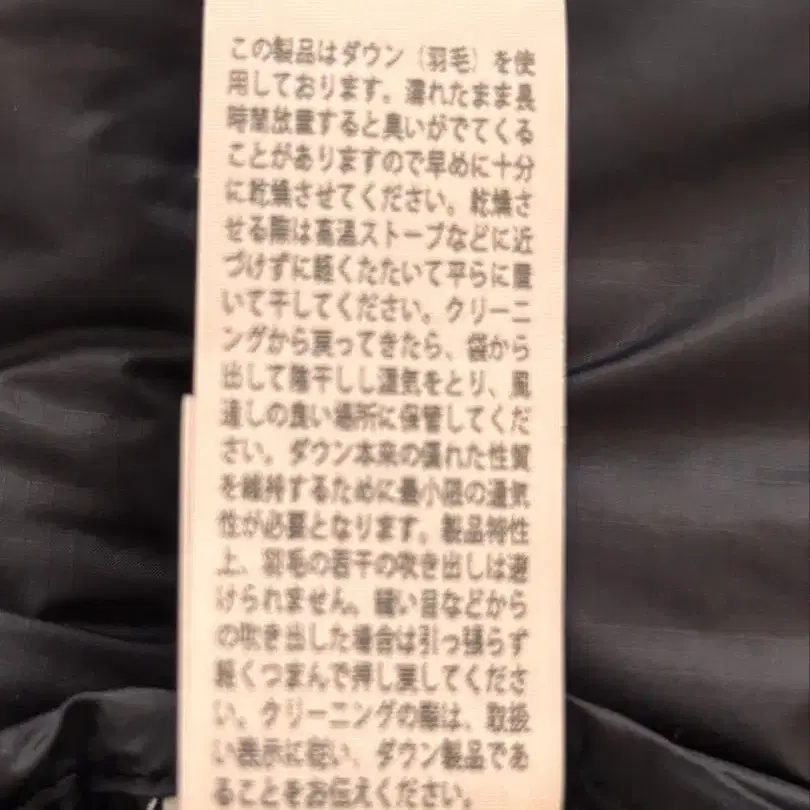 この製品はダウン（羽毛）を使
用しております。濡れたまま長
時間放置すると臭いがでてくる
ことがありますので早めに十分
に乾燥させてください。乾燥さ
せる際は高温ストーブなどに近
づけずに軽くたたいて平らに置
いて干してください。クリーニ
ングから戻ってきたら、袋から
出して陰干しし湿気をとり、風
通しの良い場所に保管してくだ
さい。ダウン本来の優れた性質
を維持するために最小限の通気
性が必要となります。製品特性
上、羽毛の若干の吹き出しは避
けられません。縫い目などから
の吹き出した場合は引っ張らず
軽くつまんで押し戻してくださ
い。クリーニングの際は、取扱
い表示に従い、ダウン製品であ
ることをお伝えください。